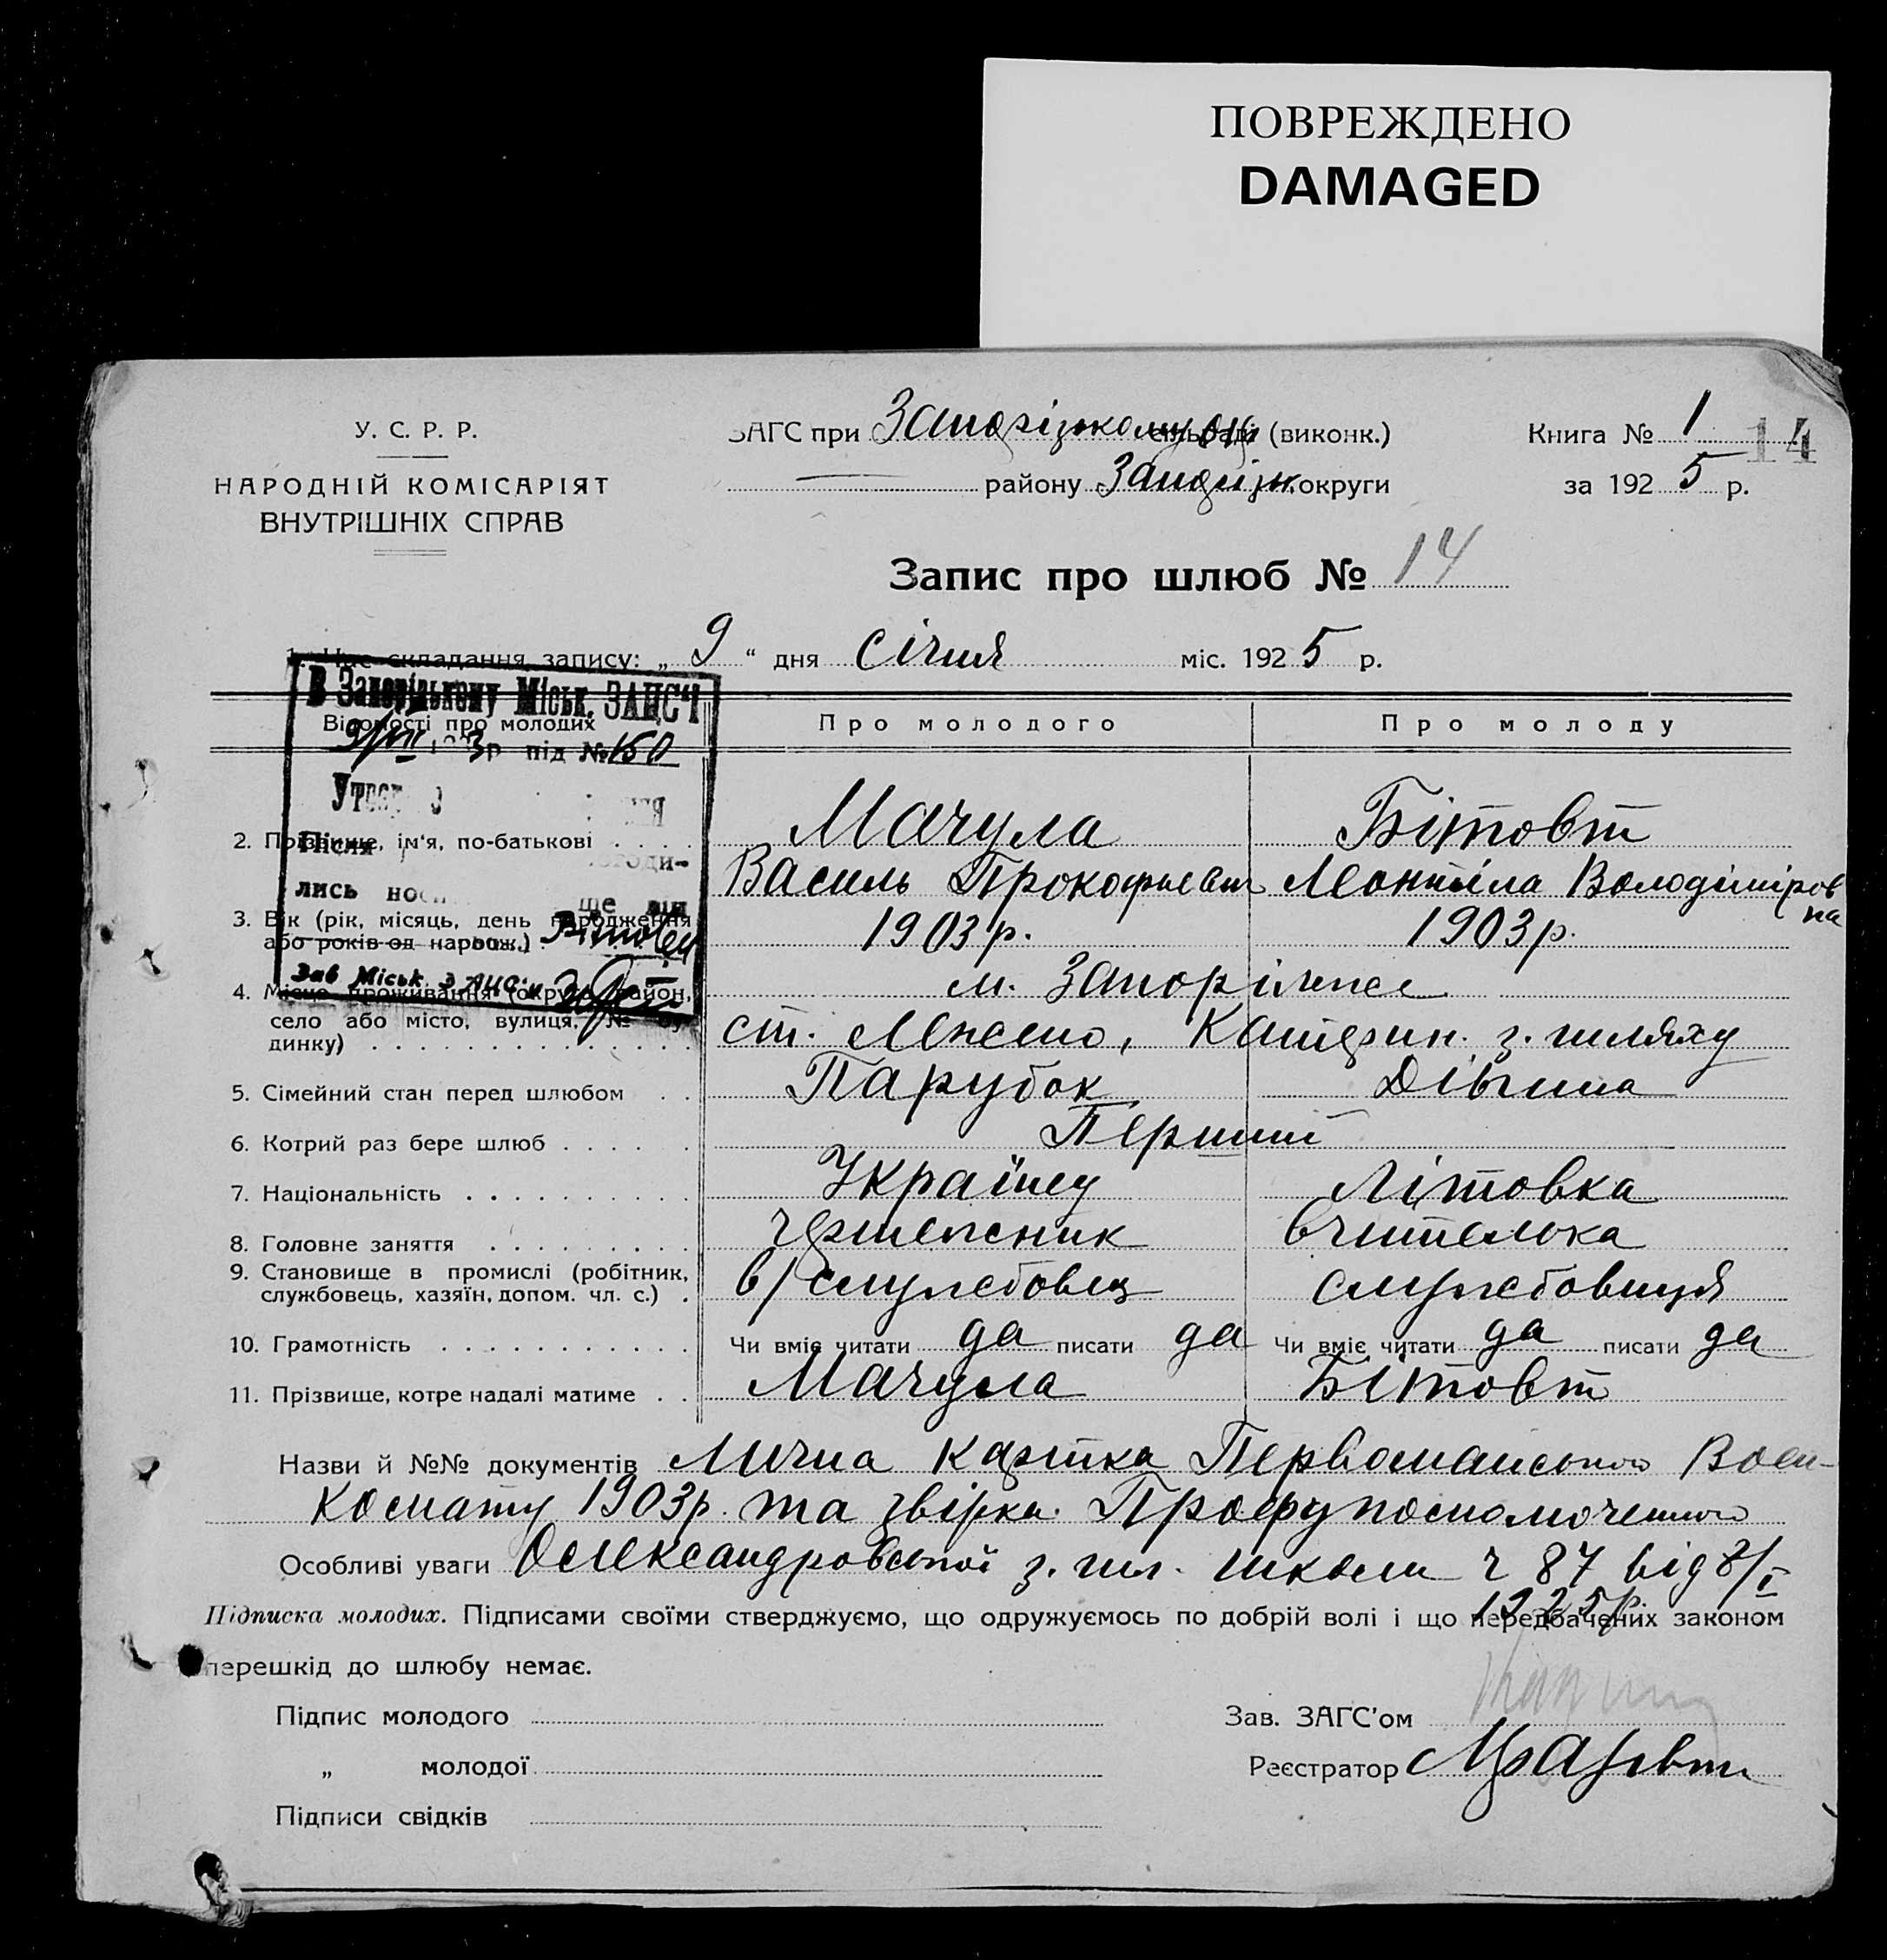 ПОВРЕЖДЕНО
DAMAGED
У. С. Р. Р.
НАРОДНІЙ КОМІСАРІЯТ
ВНУТРІШНІХ СПРАВ
ЗАГС при Запорізькому окр сільраді (виконк.)
району Запоріжк. округи
Книга № 1
14
за 1925 р.
Запис про шлюб № 14
1. Час складання запису: „ 9 “ дня січня міс. 1925 р.
В Запорізькому Міськ. ЗАНС'І
9/VII 193 р під № 150
Після
лись нос ще він
Зав Міськ. ЗАНС'
Відомості про молодих
Про молодого
Про молоду
2. Прізвище, ім'я, по-батькові
Мачула
Бітовт
Василь Прокофиевич
Леоніла Володімировна
3. Вік (рік, місяць, день народження
або років од народж.)
1903 р.
1903 р.
4. Місце проживання (округа, район,
село або місто, вулиця, № будинку)
м. Запоріжже
ст. Межево, Катерин. з. шляху
5. Сімейний стан перед шлюбом
Парубок
Дівчина
6. Котрий раз бере шлюб
Перший
7. Національність
Українец
Літовка
8. Головне заняття
чертежник
вчителька
9. Становище в промислі (робітник,
службовець, хазяїн, допом. чл. с.)
в/службовец
службовиця
10. Грамотність
Чи вміє читати да писати да
Чи вміє читати да писати да
11. Прізвище, котре надалі матиме
Мачула
Бітовт
Назви й №№ документів Лична картка Первомайського Воен-
комату 1903 р. та звірка. Профуповноноченного
Особливі уваги Олександровської з. шл. школи ч 87 від 8/I
1925 р.
Підписка молодих. Підписами своїми стверджуємо, що одружуємось по добрій волі і що передбачених законом
перешкід до шлюбу немає.
Підпис молодого
„ молодої
Підписи свідків
Зав. ЗАГС'ом
Реєстратор